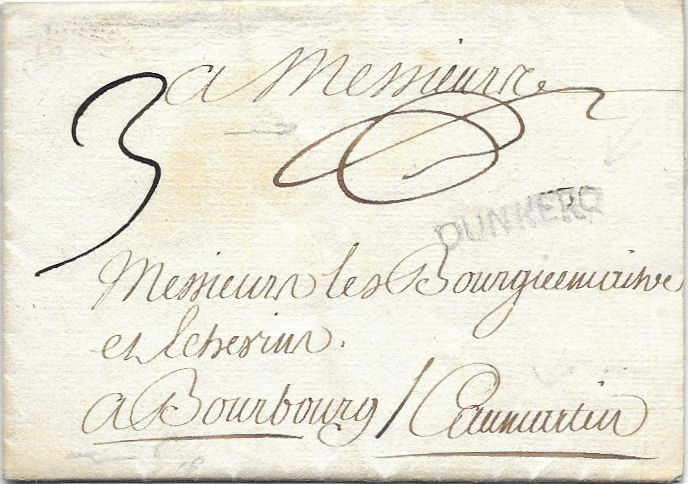 3 a Messieurs
DUNKERQ
Messieurs les Bourguemaistre
et Echevins.
a Bourbourg / Caumartin